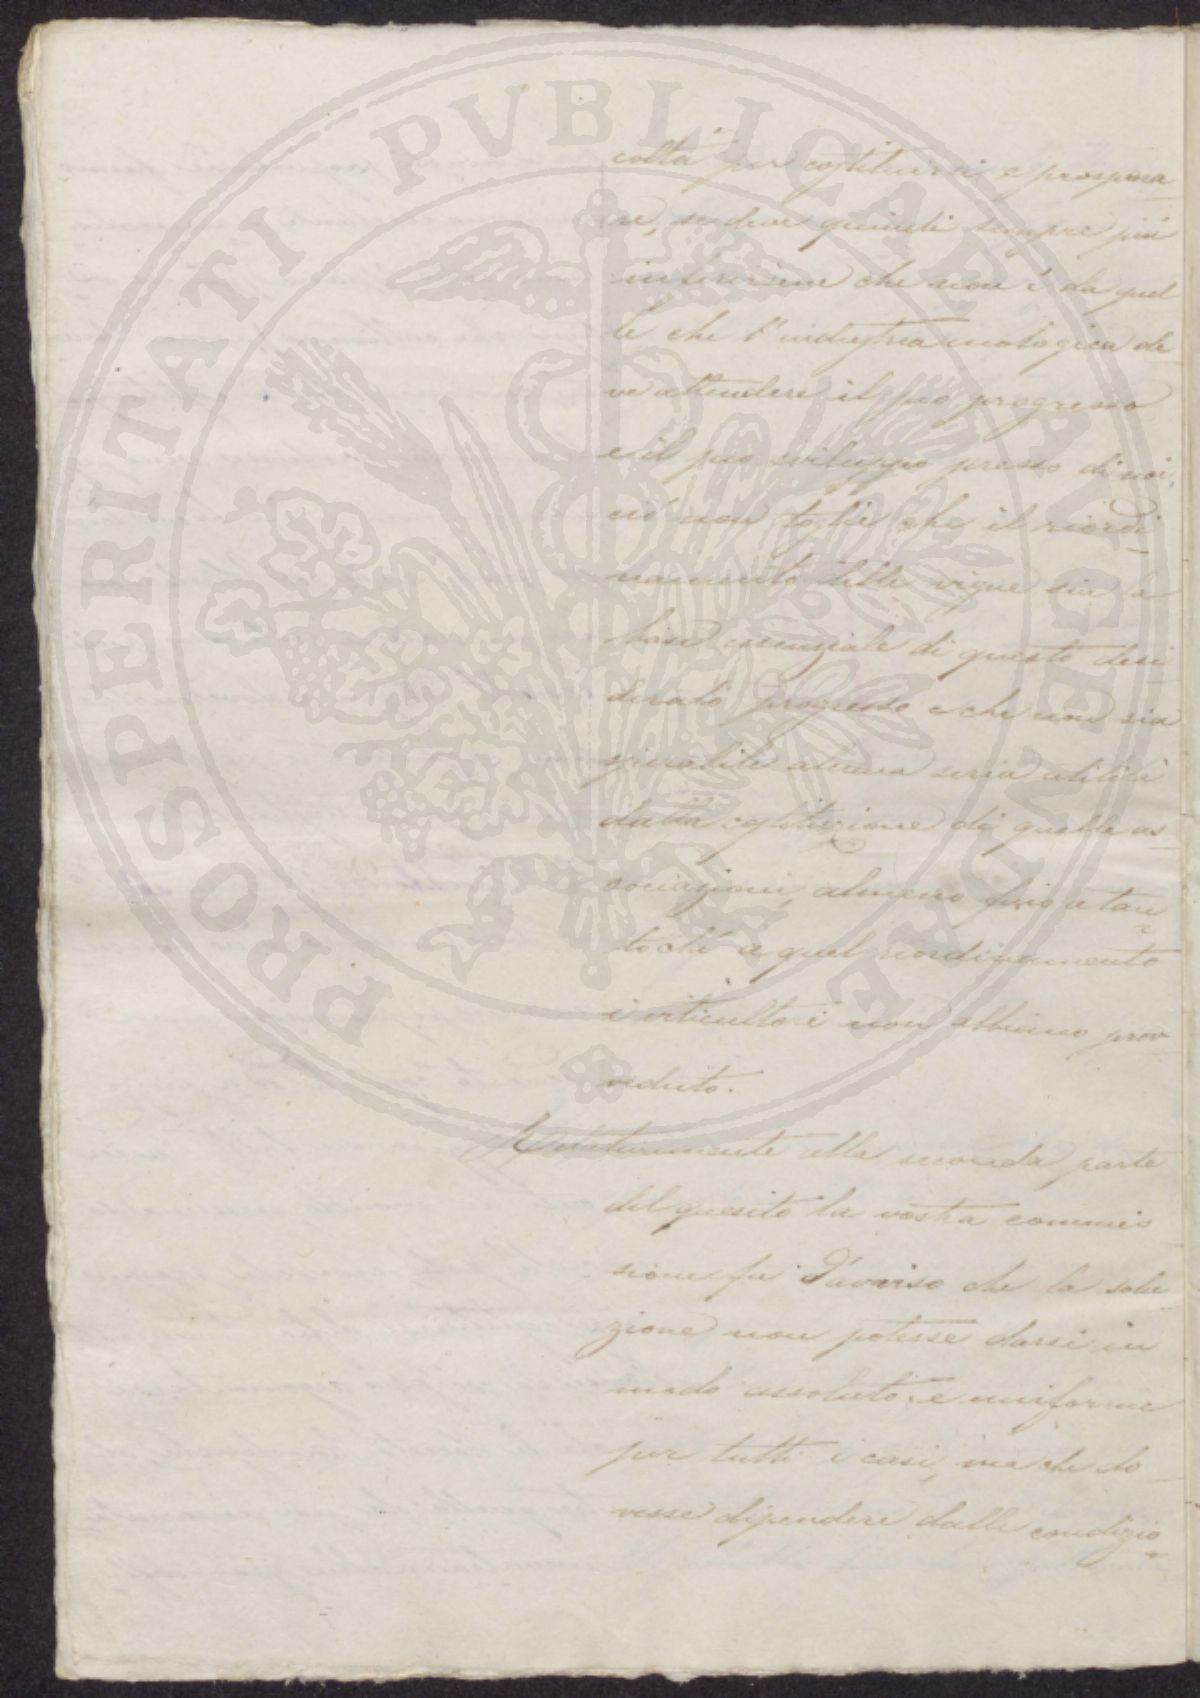 PROSPERITATI PVBLICAE AVGENDAE
coltà per costituirsi e prospera
re, si deve quindi sempre più
inferirsene che non è da quel
le che l'industria enologica de
ve attendere il suo progresso
e il suo sviluppo presso di noi.
ciò non toglie che il riordi
namento delle vigne sia la
base essenziale di questo desi
derato progresso e che non sia
sperabile alcuna seria utilità
dalla costituzione di quelle as
sociazioni, almeno fino a tan
tochè a quel riordinamento
i viticultori non abbiano prov
veduto.
Relativamente alla seconda parte
del quesito la vostra commis
sione fu d'avviso che la solu
zione non potesse darsi in
modo assoluto e uniforme
per tutti i casi, ma che do
vesse dipendere dalle condizio